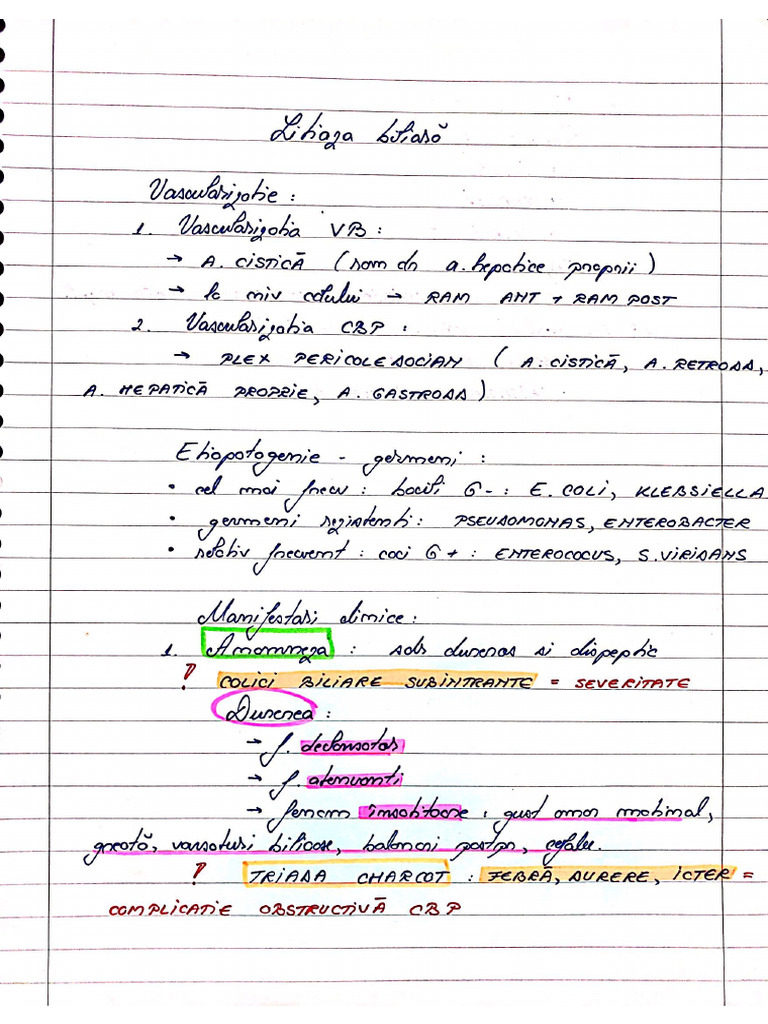 Litiaza biliară
Vascularizatie :
1. Vascularizatia VB :
→ A. CISTICĂ (ram din a. hepatice proprii)
→ la niv colului → RAM ANT + RAM POST
2. Vascularizatia CBP :
→ PLEX PERICOLEDOCIAN (A. CISTICĂ, A. RETRODD,
A. HEPATICĂ PROPRIE, A. GASTRODD)
Etiopatogenie - germeni :
• cel mai frecv : bacili G- : E. COLI, KLEBSIELLA
• germeni rezistenti : PSEUDOMONAS, ENTEROBACTER
• relativ frecvent : coci G+ : ENTEROCOCUS, S. VIRIDANS
Manifestari clinice :
1. Anamneza : sdr dureros si dispeptic
! COLICI BILIARE SUBINTRANTE = SEVERITATE
Durerea :
→ f. declansatori
→ f. atenuanti
→ fenom însotitoare : gust amar matinal,
greată, varsaturi bilioase, balonari postpr, cefalee.
! TRIADA CHARCOT : FEBRĂ, DURERE, ICTER =
COMPLICATIE OBSTRUCTIVĂ CBP